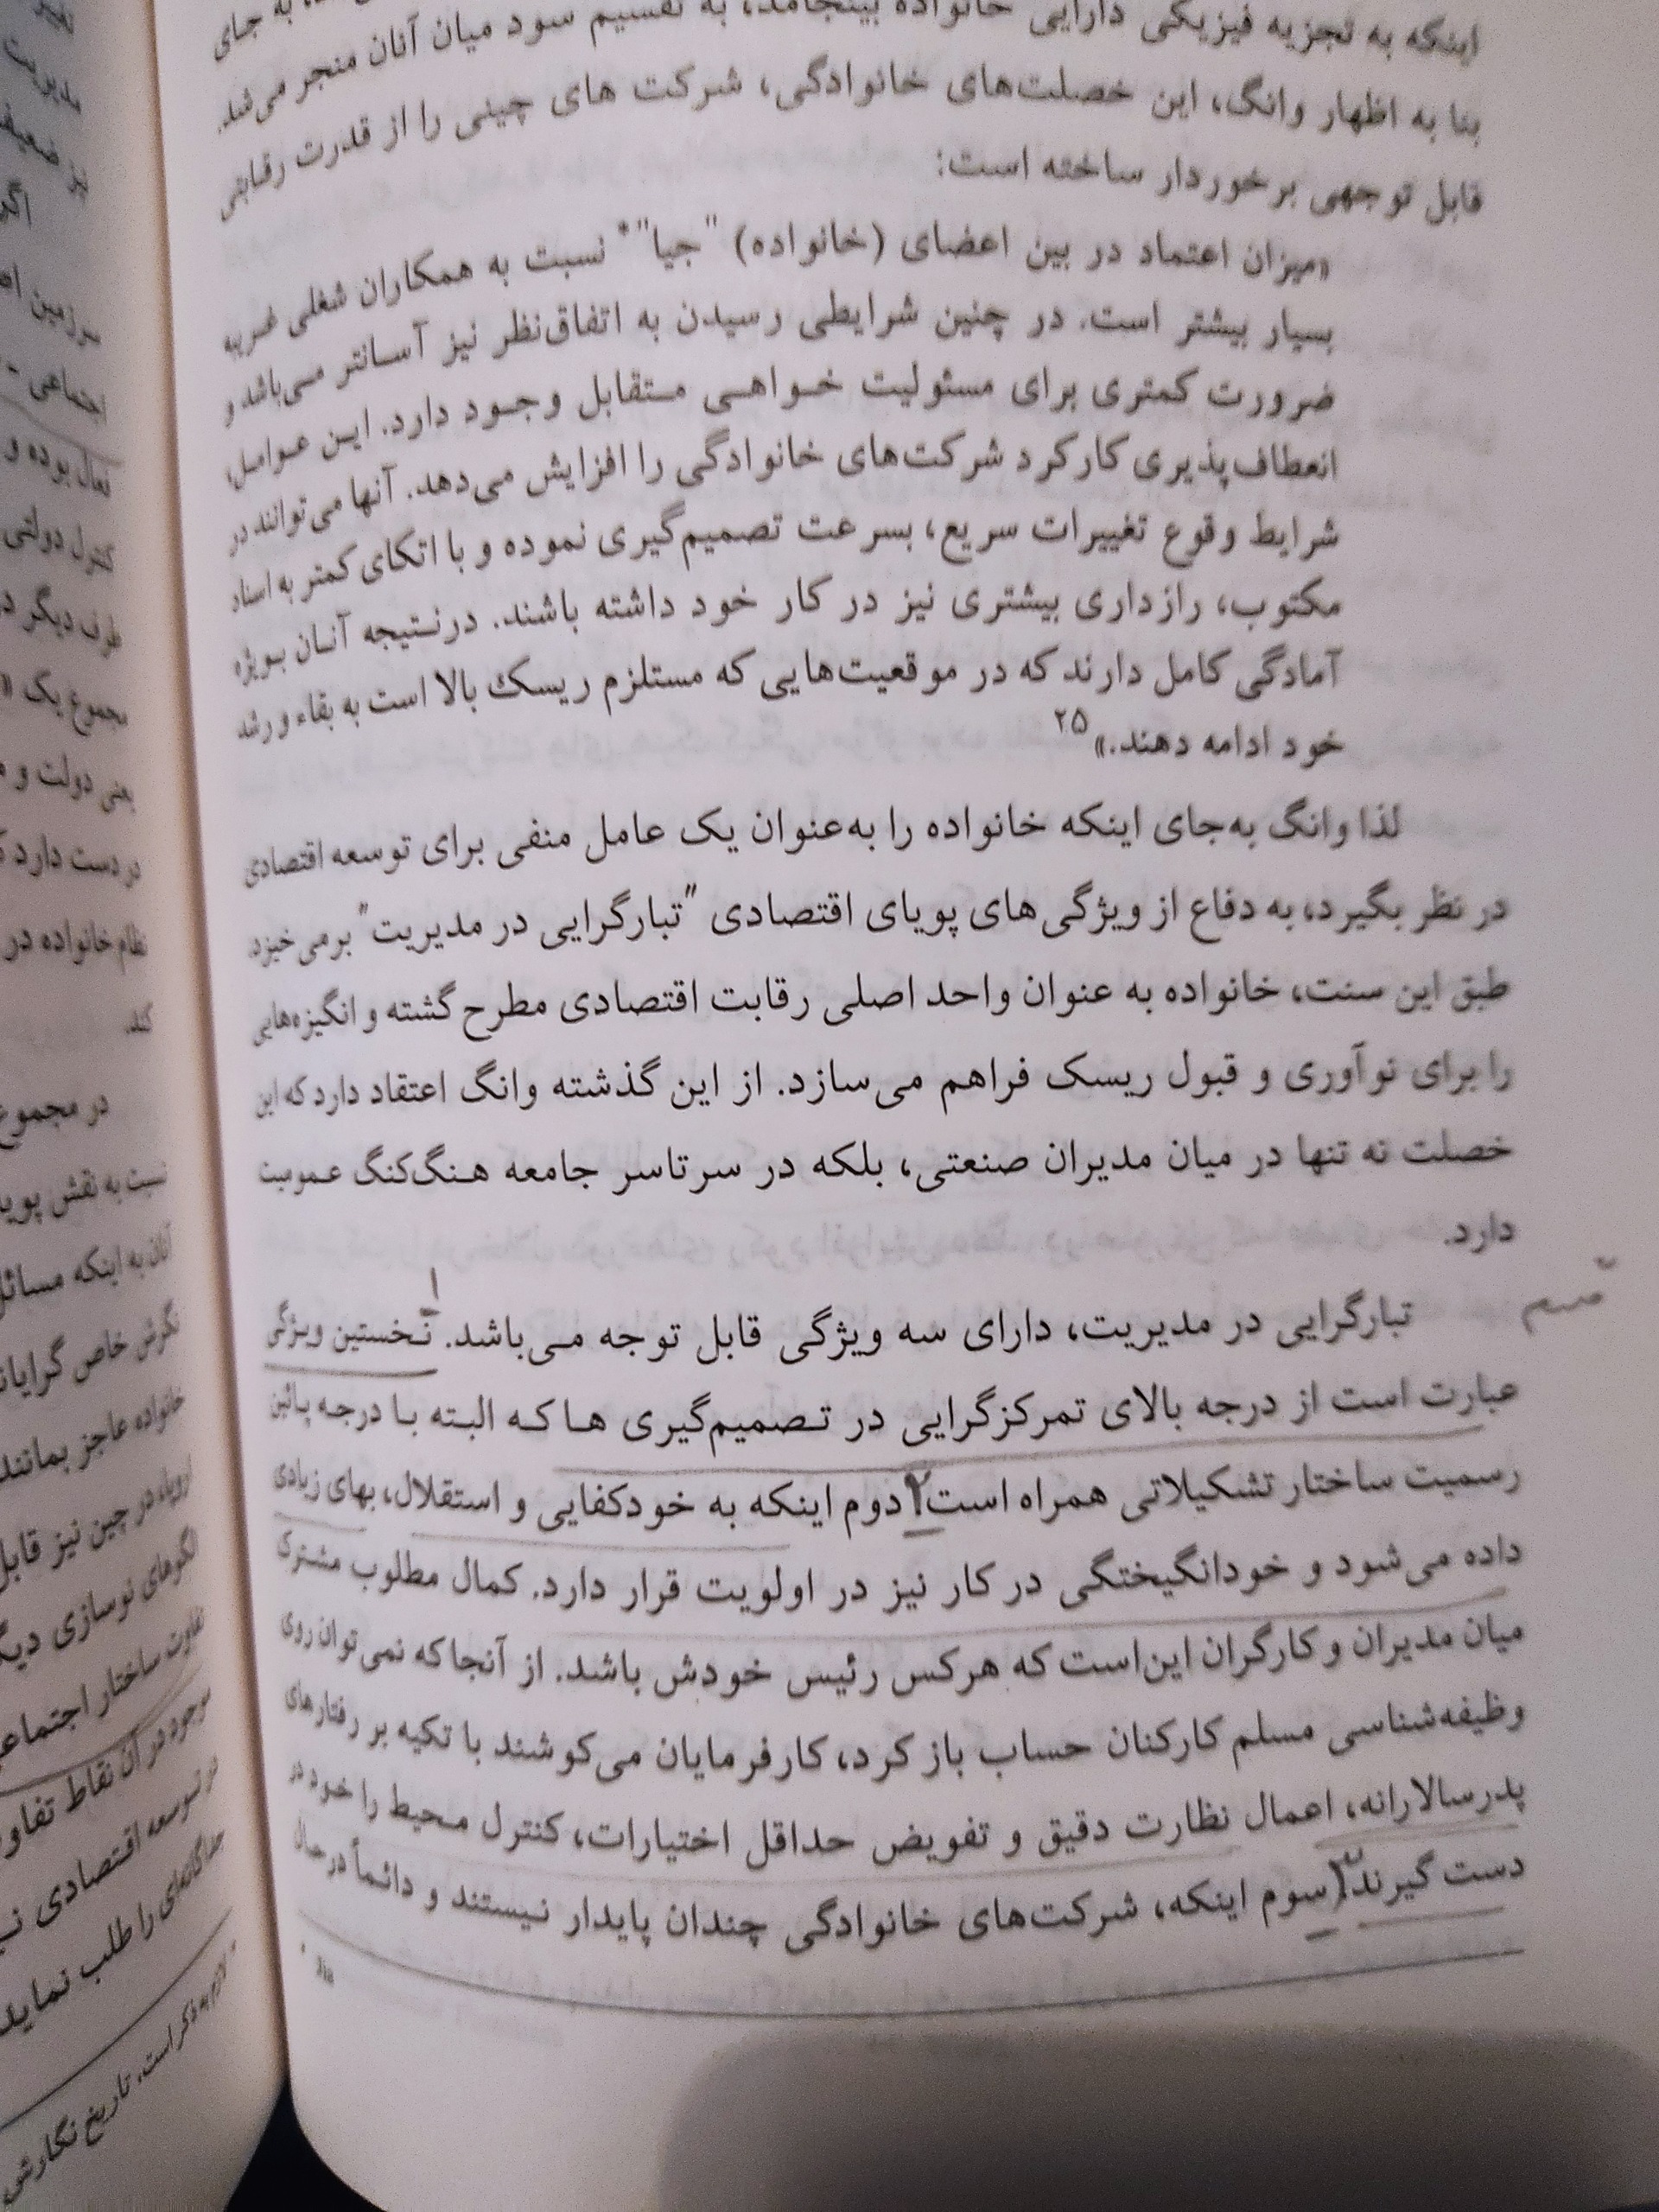 اینکه به تجزیه فیزیکی دارایی خانواده بینجامد، به تقسیم سود میان آنان منجر می‌شد.
بنا به اظهار وانگ، این خصلت‌های خانوادگی، شرکت های چینی را از قدرت رقابتی
قابل توجهی برخوردار ساخته است:
«میزان اعتماد در بین اعضای (خانواده) "جیا"* نسبت به همکاران شغلی غریبه
بسیار بیشتر است. در چنین شرایطی رسیدن به اتفاق‌نظر نیز آسانتر می‌باشد و
ضرورت کمتری برای مسئولیت خواهی متقابل وجود دارد. این عوامل،
انعطاف‌پذیری کارکرد شرکت‌های خانوادگی را افزایش می‌دهد. آنها می‌توانند در
شرایط وقوع تغییرات سریع، بسرعت تصمیم‌گیری نموده و با اتکای کمتر به اسناد
مکتوب، رازداری بیشتری نیز در کار خود داشته باشند. درنتیجه آنان بویژه
آمادگی کامل دارند که در موقعیت‌هایی که مستلزم ریسک بالا است به بقاء و رشد
خود ادامه دهند.»۲۵
لذا وانگ به‌جای اینکه خانواده را به‌عنوان یک عامل منفی برای توسعه اقتصادی
در نظر بگیرد، به دفاع از ویژگی‌های پویای اقتصادی "تبارگرایی در مدیریت" برمی‌خیزد
طبق این سنت، خانواده به عنوان واحد اصلی رقابت اقتصادی مطرح گشته و انگیزه‌هایی
را برای نوآوری و قبول ریسک فراهم می‌سازد. از این گذشته وانگ اعتقاد دارد که این
خصلت نه تنها در میان مدیران صنعتی، بلکه در سرتاسر جامعه هنگ‌کنگ عمومیت
دارد.
تبارگرایی در مدیریت، دارای سه ویژگی قابل توجه می‌باشد. ۱ نخستین ویژگی
عبارت است از درجه بالای تمرکزگرایی در تصمیم‌گیری ها که البته با درجه پائین
رسمیت ساختار تشکیلاتی همراه است ۲ دوم اینکه به خودکفایی و استقلال، بهای زیادی
داده می‌شود و خودانگیختگی در کار نیز در اولویت قرار دارد. کمال مطلوب مشترک
میان مدیران و کارگران این‌است که هرکس رئیس خودش باشد. از آنجا که نمی‌توان روی
وظیفه‌شناسی مسلم کارکنان حساب باز کرد، کارفرمایان می‌کوشند با تکیه بر رفتارهای
پدرسالارانه، اعمال نظارت دقیق و تفویض حداقل اختیارات، کنترل محیط را خود در
دست گیرند ۳ سوم اینکه، شرکت‌های خانوادگی چندان پایدار نیستند و دائماً در حال
* Jia
مهم
تغییر
مدیریت
نیز ضعیف
اگر
سرزمین
اجتماعی -
فعال بوده و
کنترل دولتی
طرف دیگر
مجموع یک «
یعنی دولت و
در دست دارد
نظام خانواده در
کند.
در مجموع
نسبت به نقش پویا
آنان به اینکه مسائل
نگرش خاص گرایانه
خانواده عاجز بمانند
اروپا، در چین نیز قابل
الگوهای نوسازی دیگر
تفاوت ساختار اجتماعی
موجود در آن نقاط تفاوت
در توسعه اقتصادی
جداگانه‌ای را طلب نماید
لازم به ذکر است، تاریخ نگارش